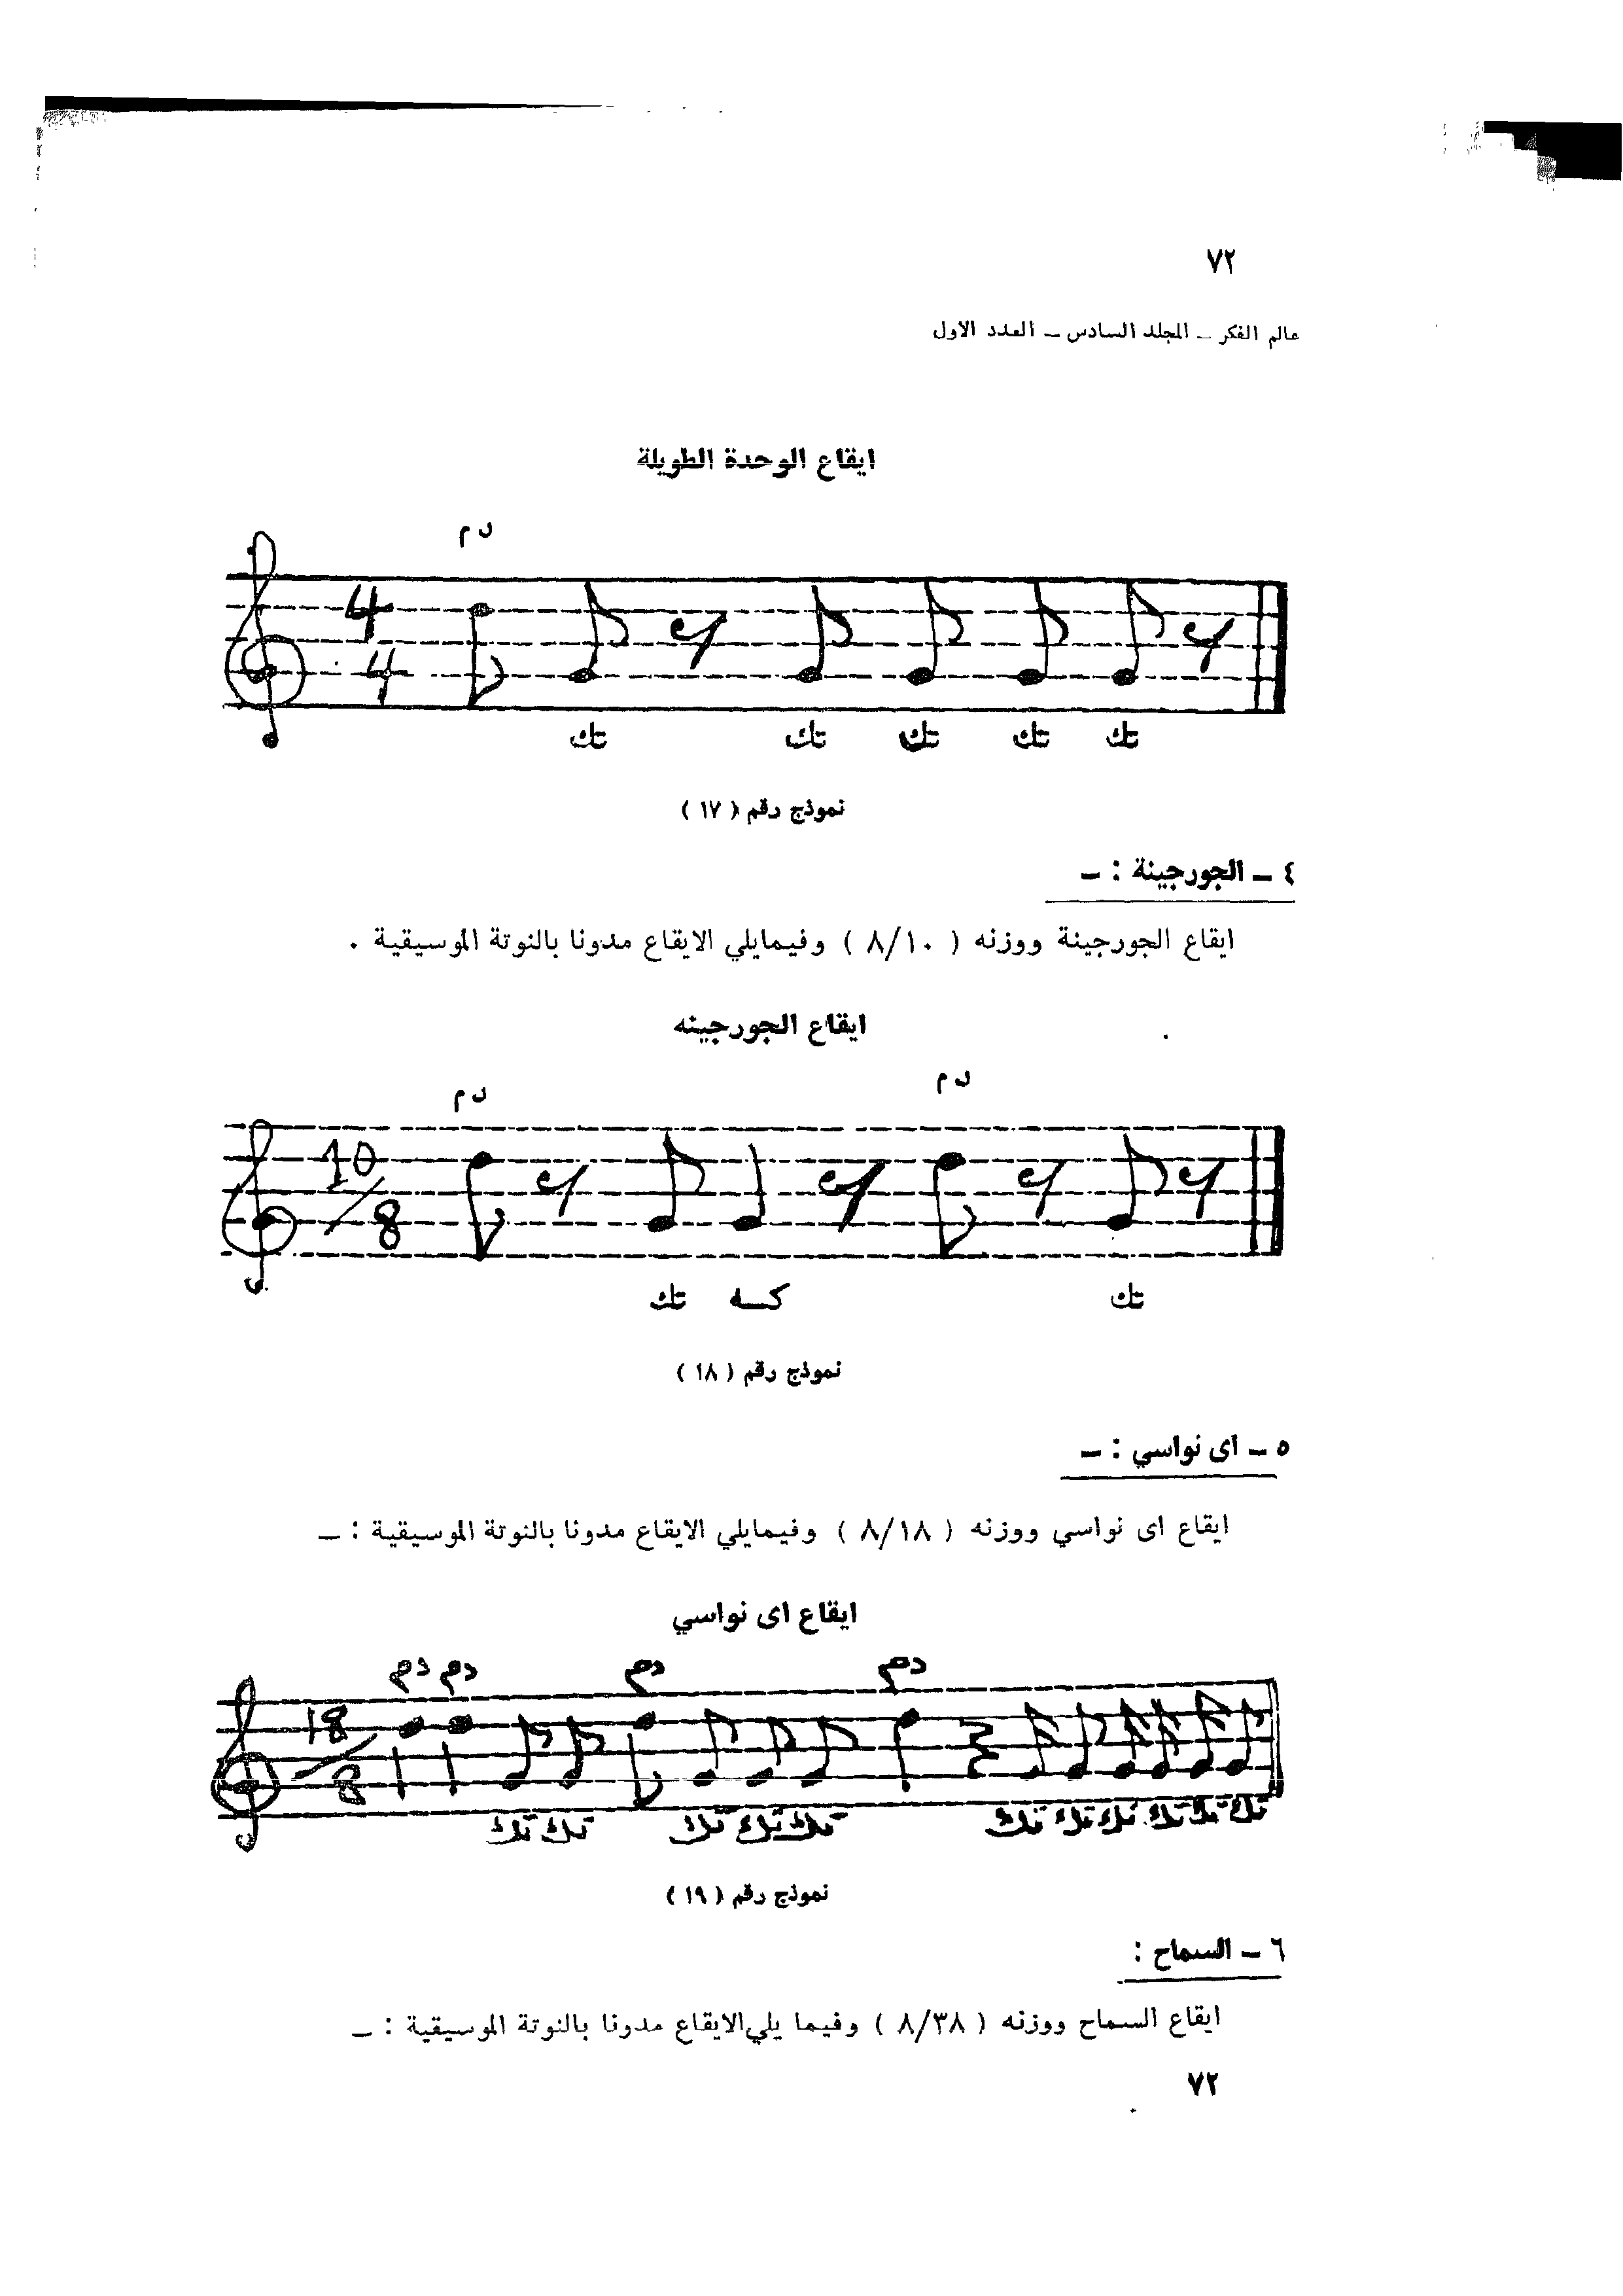 ٧٢
عالم الفكر ــ المجلد السادس ــ العدد الاول
ايقاع الوحدة الطويلة
دم
4
4
تك تك تك تك تك
نموذج رقم ( ١٧ )
٤ ــ الجورجينة : ــ
ايقاع الجورجينة ووزنه ( ٨/١٠ ) وفيمايلي الايقاع مدونا بالنوتة الموسيقية .
ايقاع الجورجينه
دم دم
10/8
تك كـه تك
نموذج رقم ( ١٨ )
٥ ــ اى نواسي : ــ
ايقاع اى نواسي ووزنه ( ٨/١٨ ) وفيمايلي الايقاع مدونا بالنوتة الموسيقية : ــ
ايقاع اى نواسي
دم دم دم دم
18/8
تك تك تك تك تك تك تك تك تك تك تك
نموذج رقم ( ١٩ )
٦ ــ السماح :
ايقاع السماح ووزنه ( ٨/٣٨ ) وفيما يلي الايقاع مدونا بالنوتة الموسيقية : ــ
٧٢